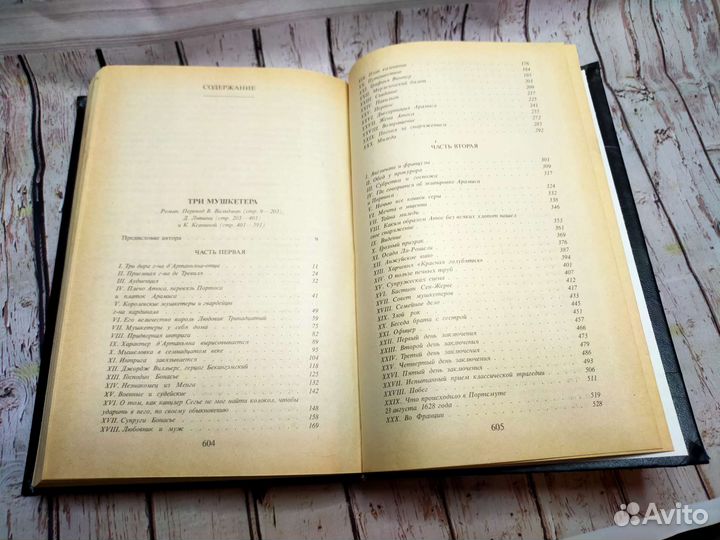 СОДЕРЖАНИЕ
ТРИ МУШКЕТЕРА
Роман. Перевод В. Вальдман (стр. 6—203),
Д. Лившиц (стр. 203—401)
и К. Ксаниной (стр. 401—591)
Предисловие автора
ЧАСТЬ ПЕРВАЯ
I. Три дара г-на д'Артаньяна-отца
II. Приемная г-на де Тревиля 24
III. Аудиенция 32
IV. Плечо Атоса, перевязь Портоса
и платок Арамиса 41
V. Королевские мушкетеры и гвардейцы
г-на кардинала 49
VI. Его величество король Людовик Тринадцатый 59
VII. Мушкетеры у себя дома 75
VIII. Придворная интрига 82
IX. Характер д'Артаньяна вырисовывается
X. Мышеловка в семнадцатом веке 95
XI. Интрига завязывается 104
XII. Джордж Вилльерс, герцог Бекингэмский 118
XIII. Господин Бонасье 125
XIV. Незнакомец из Менга 132
XV. Военные и судейские 142
XVI. О том, как канцлер Сегье не мог найти колокол, чтобы
ударить в него, по своему обыкновению 148
XVII. Супруги Бонасье 158
XVIII. Любовник и муж 169
604
XIX. План кампании 176
XX. Путешествие 184
XXI. Графиня Винтер
XXII. Мерлезонский балет 201
XXIII. Свидание 209
XXIV. Павильон
XXV. Портос
XXVI. Диссертация Арамиса 241
XXVII. Жена Атоса
XXVIII. Возвращение 272
XXIX. Погоня за снаряжением 283
XXX. Миледи 292
ЧАСТЬ ВТОРАЯ
I. Англичане и французы 301
II. Обед у прокурора 309
III. Субретка и госпожа 317
IV. Где говорится об экипировке Арамиса
и Портоса
V. Ночью все кошки серы
VI. Мечта о мщении
VII. Тайна миледи
VIII. Каким образом Атос без всяких хлопот нашел
свое снаряжение 353
IX. Видение
X. Грозный призрак
XI. Осада Ла-Рошели
XII. Анжуйское вино
XIII. Харчевня «Красная голубятня»
XIV. О пользе печных труб 401
XV. Супружеская сцена
XVI. Бастион Сен-Жерве
XVII. Совет мушкетеров
XVIII. Семейное дело
XIX. Злой рок 445
XX. Беседа брата с сестрой
XXI. Офицер 467
XXII. Первый день заключения
XXIII. Второй день заключения
XXIV. Третий день заключения 486
XXV. Четвертый день заключения 493
XXVI. Пятый день заключения
XXVII. Испытанный прием классической трагедии 506
XXVIII. Побег 511
XXIX. Что происходило в Портсмуте
23 августа 1628 года 519
XXX. Во Франции 528
605
Avito